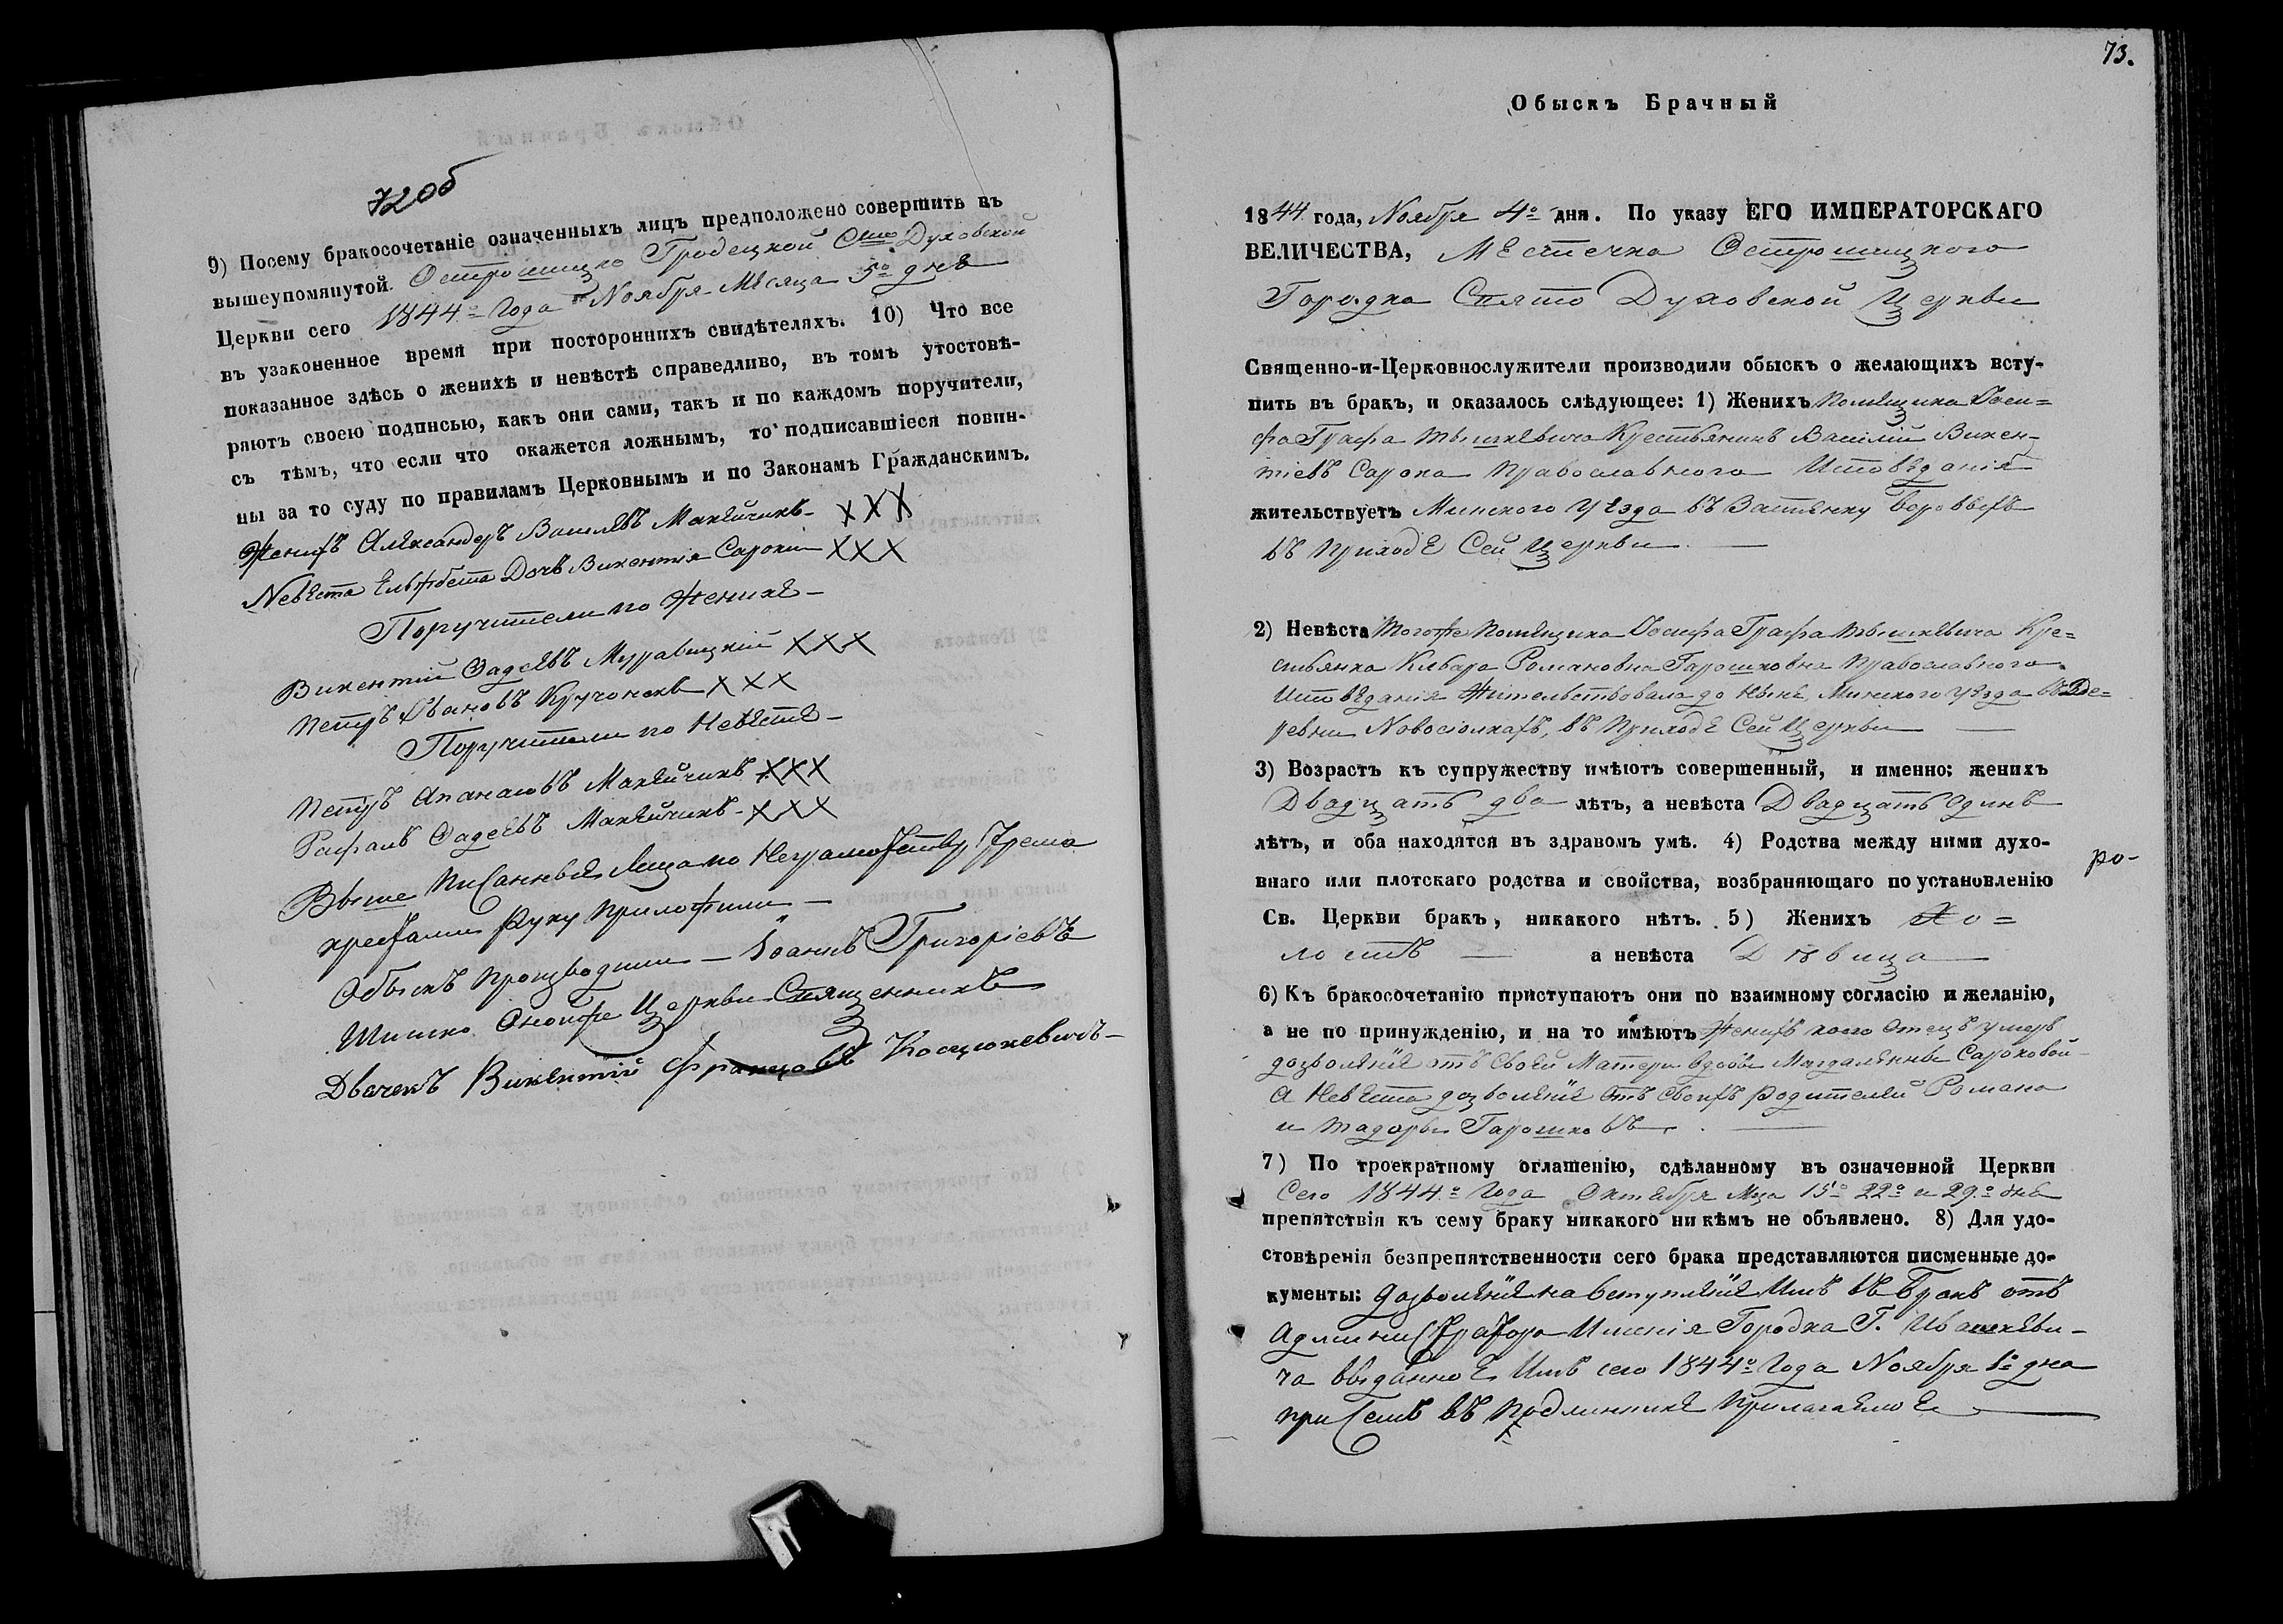 72об
9) Посему бракосочетаніе означенныхъ лицъ предположено совершить въ
вышеупомянутой. Острошицко Гродецкой Свято Духовской
Церкви сего 1844го Года Ноября Мѣсяца 5го дня
въ узаконенное время при постороннихъ свидѣтеляхъ. 10) Что все
показанное здѣсь о женихѣ и невѣстѣ справедливо, въ томъ утостовѣ-
ряютъ своею подписью, какъ они сами, такъ и по каждомъ поручители,
съ тѣмъ, что если что окажется ложнымъ, то подписавшіеся повин-
ны за то суду по правиламъ Церковнымъ и по Законамъ Гражданскимъ.
Женихъ Александеръ Василевъ Макейчикъ - ХХХ
Невѣста Дочь Викентія Сароки ХХХ
Поручители по Женихѣ -
Викентій Фадеевъ Муравицкій ХХХ
Петръ Ивановъ Кручонокъ ХХХ
Поручители по Невѣстѣ -
Петръ Апанасовъ Макейчикъ ХХХ
Рафалъ Фадеевъ Макейчикъ - ХХХ
Выше Писанныя Лица по Неграмотству трема
крестами Руку Приложили -
Обыскъ Производили - Іоаннъ Григоріевъ
Шишко Оной же Церкви Священникъ
Дьячекъ Викентій Францовъ Косцюкевичъ -
73.
Обыскъ Брачный
1844 года, Ноября 4го дня. По указу ЕГО ИМПЕРАТОРСКАГО
ВЕЛИЧЕСТВА, Местечка Острошицкого
Городка Свято Духовской Церкви
Священно-и-Церковнослужители производили обыскъ о желающихъ всту-
пить въ бракъ, и оказалось слѣдующее: 1) Женихъ Помещика Іоси=
фа Графа Тышкевича Крестьянинъ Василій Викен-
тіевъ Сарока Православного Исповѣданія
жительствуетъ Минского Уезда въ Застенку
въ Приходе Сей Церкви
2) Невѣста Тогоже Помещика Іосифа Графа Тышкевича Кре=
стьянка Романовна Гарошковна Православного
Исповѣданія Жительствовала до Ныне Минского Уезда въ Де=
ревни Новосіолкахъ, въ Приходе Сей Церкви
3) Возрастъ къ супружеству имѣютъ совершенный, и именно: женихъ
Двадцать два лѣтъ, а невѣста Двадцать Одинъ
лѣтъ, и оба находятся въ здравомъ умѣ. 4) Родства между ними духо-
внаго или плотскаго родства и свойства, возбраняющаго по установленію
ро-
Св. Церкви бракъ, никакого нѣтъ. 5) Женихъ Хо=
лостъ а невѣста Дѣвица
6) Къ бракосочетанію приступаютъ они по взаимному согласію и желанію,
а не по принужденію, и на то имѣютъ Женихъ коего Отецъ умеръ
дозволеніе отъ своей Матери вдовы Магдалены Сароковой
а Невеста дозволеніе отъ своихъ Родителей Романа
и Тадоры Гарошковъ
7) По троекратному оглашенію, сдѣланному въ означенной Церкви
Сего 1844го Года Октября Мца 15го 22го и 29го дня
препятствія къ сему браку никакого ни кѣмъ не объявлено. 8) Для удо-
стовѣренія безпрепятственности сего брака представляются писменные до-
кументы: дозволеніе на вступленіе Имъ въ Бракъ отъ
Администратора Именія Городка Г. Ивашкеви-
ча выданное Имъ сего 1844го Года Ноября 1го дня
при семъ въ Подлиннике Прилагаемое